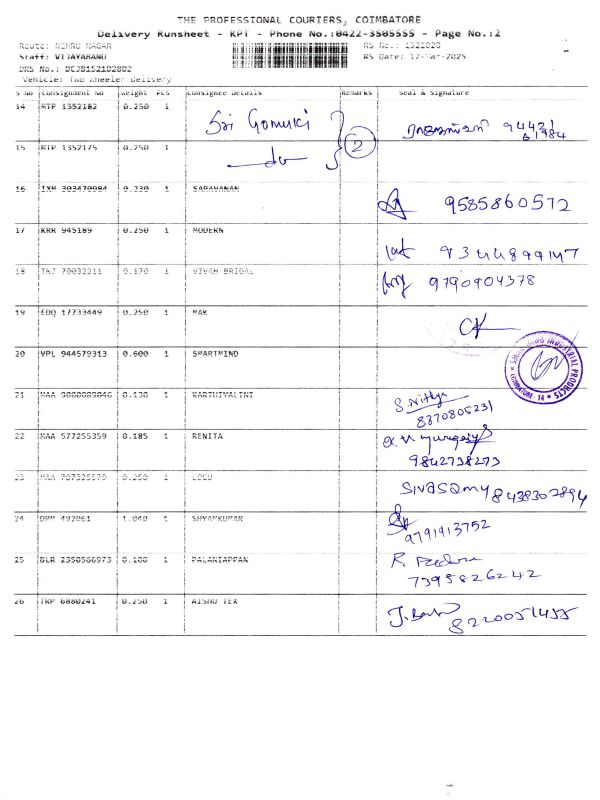 THE PROFESSIONAL COURIERS, COIMBATORE
Delivery Runsheet - KPT - Phone No.:0422-3505555 - Page No.:2
Route: NEHRU NAGAR RS No.: 1521028
Staff: VIJAYABANU RS Date: 12-Mar-2025
DRS No.: DCJB152102802
Vehicle: Two Wheeler Delivery
S No Consignment No Weight Pcs Consignee Details Remarks Seal & Signature
14 MTP 1352182 0.250 1 Sri Gomuki 2
15 MTP 1352175 0.250 1 do
16 0.230 1 SARAVANAN 9585860572
17 KRR 945189 0.250 1 MODERN 9344899147
18 TRJ 70032211 0.170 1 VIVAH BRIDAL 9790904378
19 EDQ 17733449 0.250 1 MAK CK
20 VPL 944579313 0.600 1 SMARTMIND
INDUSTRIAL PRODUCTS
21 0.130 1 KARTHIYALINI S. Nithya
8870805231
22 MAA 577255359 0.185 1 RENITA
9842738273
23 0.250 1 LOGU Sivasamy 8438302894
24 492061 1.040 1 SHYAMKUMAR
9791913752
25 BLR 2350566973 0.100 1 PALANIAPPAN R.
7395826242
26 TRP 6880241 0.250 1 AISHU TEX